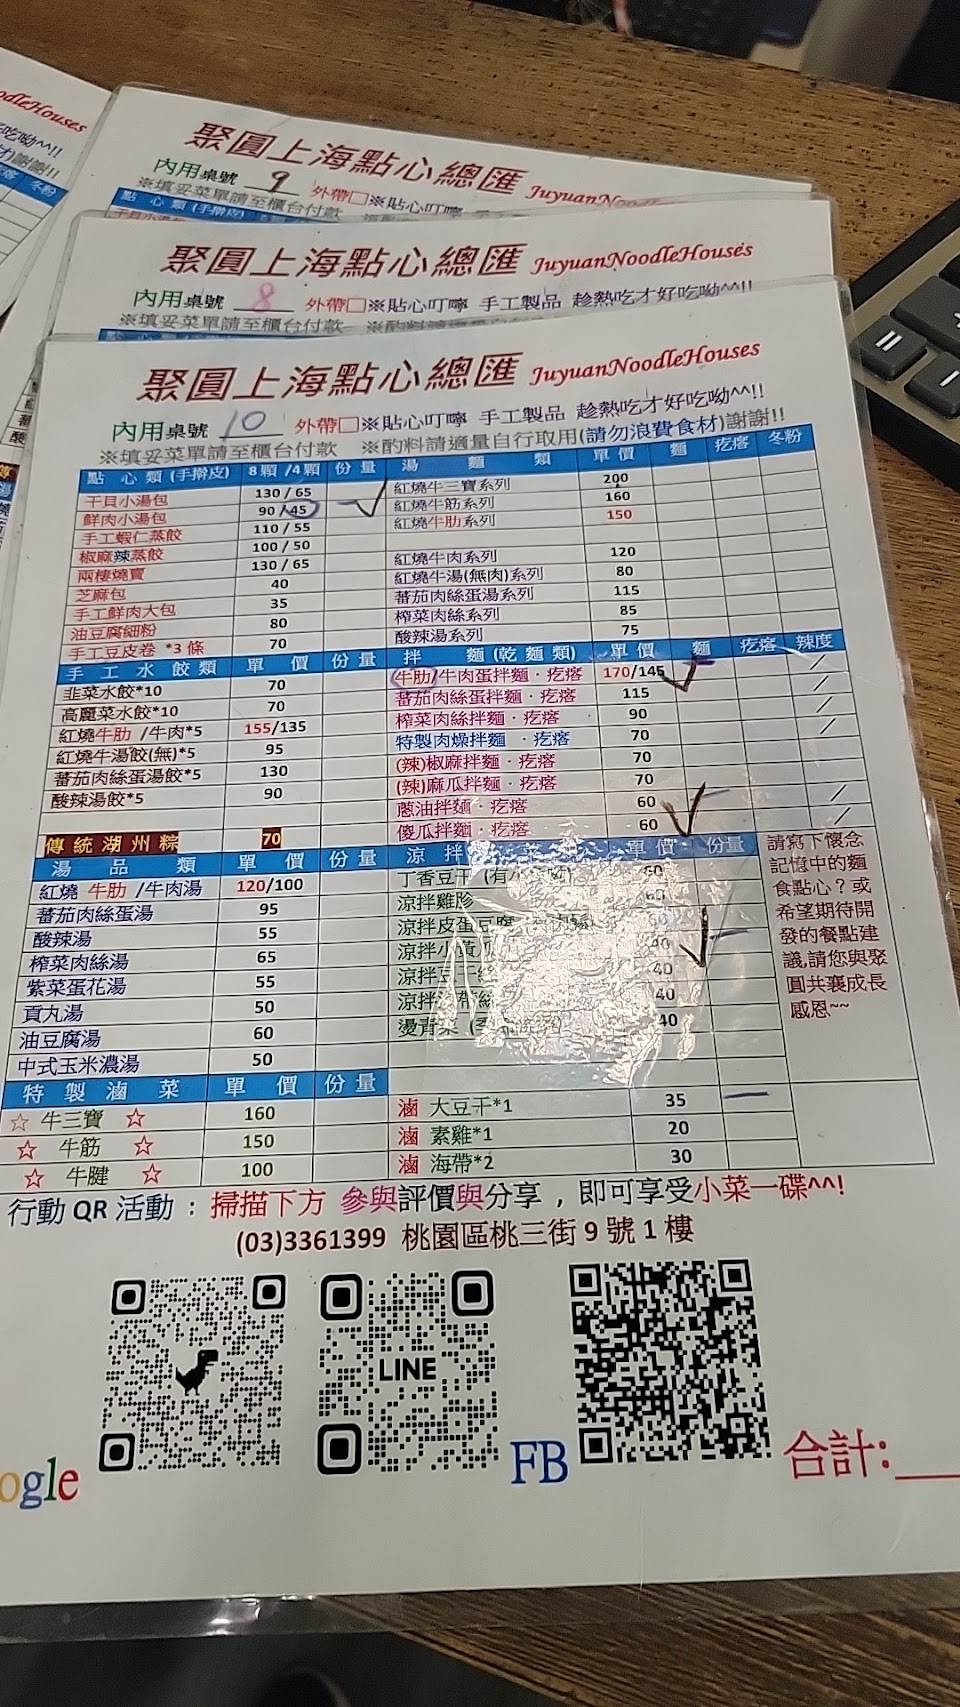 odleHouses
聚圓上海點心總匯 JuyuanNood
內用桌號 9 外帶□※貼心叮嚀
※填妥菜單請至櫃台付款
點 心 類 (手擀皮)
聚圓上海點心總匯 JuyuanNoodleHouses
內用桌號 8 外帶□※貼心叮嚀 手工製品 趁熱吃才好吃呦^^!!
※填妥菜單請至櫃台付款
聚圓上海點心總匯 JuyuanNoodleHouses
內用桌號 10 外帶□※貼心叮嚀 手工製品 趁熱吃才好吃呦^^!!
※填妥菜單請至櫃台付款 ※酌料請適量自行取用(請勿浪費食材)謝謝!!
點 心 類 (手擀皮) 8顆/4顆 份量
干貝小湯包 130/65
鮮肉小湯包 90/45 ✓
手工蝦仁蒸餃 110/55
椒麻辣蒸餃 100/50
兩棲燒賣 130/65
芝麻包 40
手工鮮肉大包 35
油豆腐細粉 80
手工豆皮卷 *3 條 70
湯 麵 類 單價 麵 疙瘩 冬粉
紅燒牛三寶系列 200
紅燒牛筋系列 160
紅燒牛肋系列 150
紅燒牛肉系列 120
紅燒牛湯(無肉)系列 80
蕃茄肉絲蛋湯系列 115
榨菜肉絲系列 85
酸辣湯系列 75
手 工 水 餃 類 單 價 份 量
韭菜水餃*10 70
高麗菜水餃*10 70
紅燒牛肋 /牛肉*5 155/135
紅燒牛湯餃(無)*5 95
蕃茄肉絲蛋湯餃*5 130
酸辣湯餃*5 90
傳統湖州粽 70
拌 麵(乾 麵 類) 單價 麵 疙瘩 辣度
牛肋/牛肉蛋拌麵．疙瘩 170/145 ✓ /
蕃茄肉絲拌麵．疙瘩 115 /
榨菜肉絲拌麵．疙瘩 90
特製肉燥拌麵 ．疙瘩 70 /
(辣)椒麻拌麵．疙瘩 70
(辣)麻瓜拌麵．疙瘩 70
蔥油拌麵．疙瘩 60 /
傻瓜拌麵．疙瘩 60 ✓ /
湯 品 類 單 價 份 量
紅燒 牛肋 /牛肉湯 120/100
蕃茄肉絲蛋湯 95
酸辣湯 55
榨菜肉絲湯 65
紫菜蛋花湯 55
貢丸湯 50
油豆腐湯 60
中式玉米濃湯 50
涼 拌 菜 類 單價 份量
丁香豆干 60
涼拌雞胗 60
涼拌皮蛋豆腐
涼拌小黃瓜 40 ✓
涼拌豆干絲 40
涼拌海帶絲 40
燙青菜 40
請寫下懷念
記憶中的麵
食點心？或
希望期待開
發的餐點建
議,請您與聚
圓共襄成長
感恩~~
特 製 滷 菜 單 價 份 量
☆ 牛三寶 ☆ 160
☆ 牛筋 ☆ 150
☆ 牛腱 ☆ 100
滷 大豆干*1 35
滷 素雞*1 20
滷 海帶*2 30
行動 QR 活動 : 掃描下方 參與評價與分享 , 即可享受小菜一碟^^!
(03)3361399 桃園區桃三街 9 號 1 樓
LINE
ogle
FB
合計: